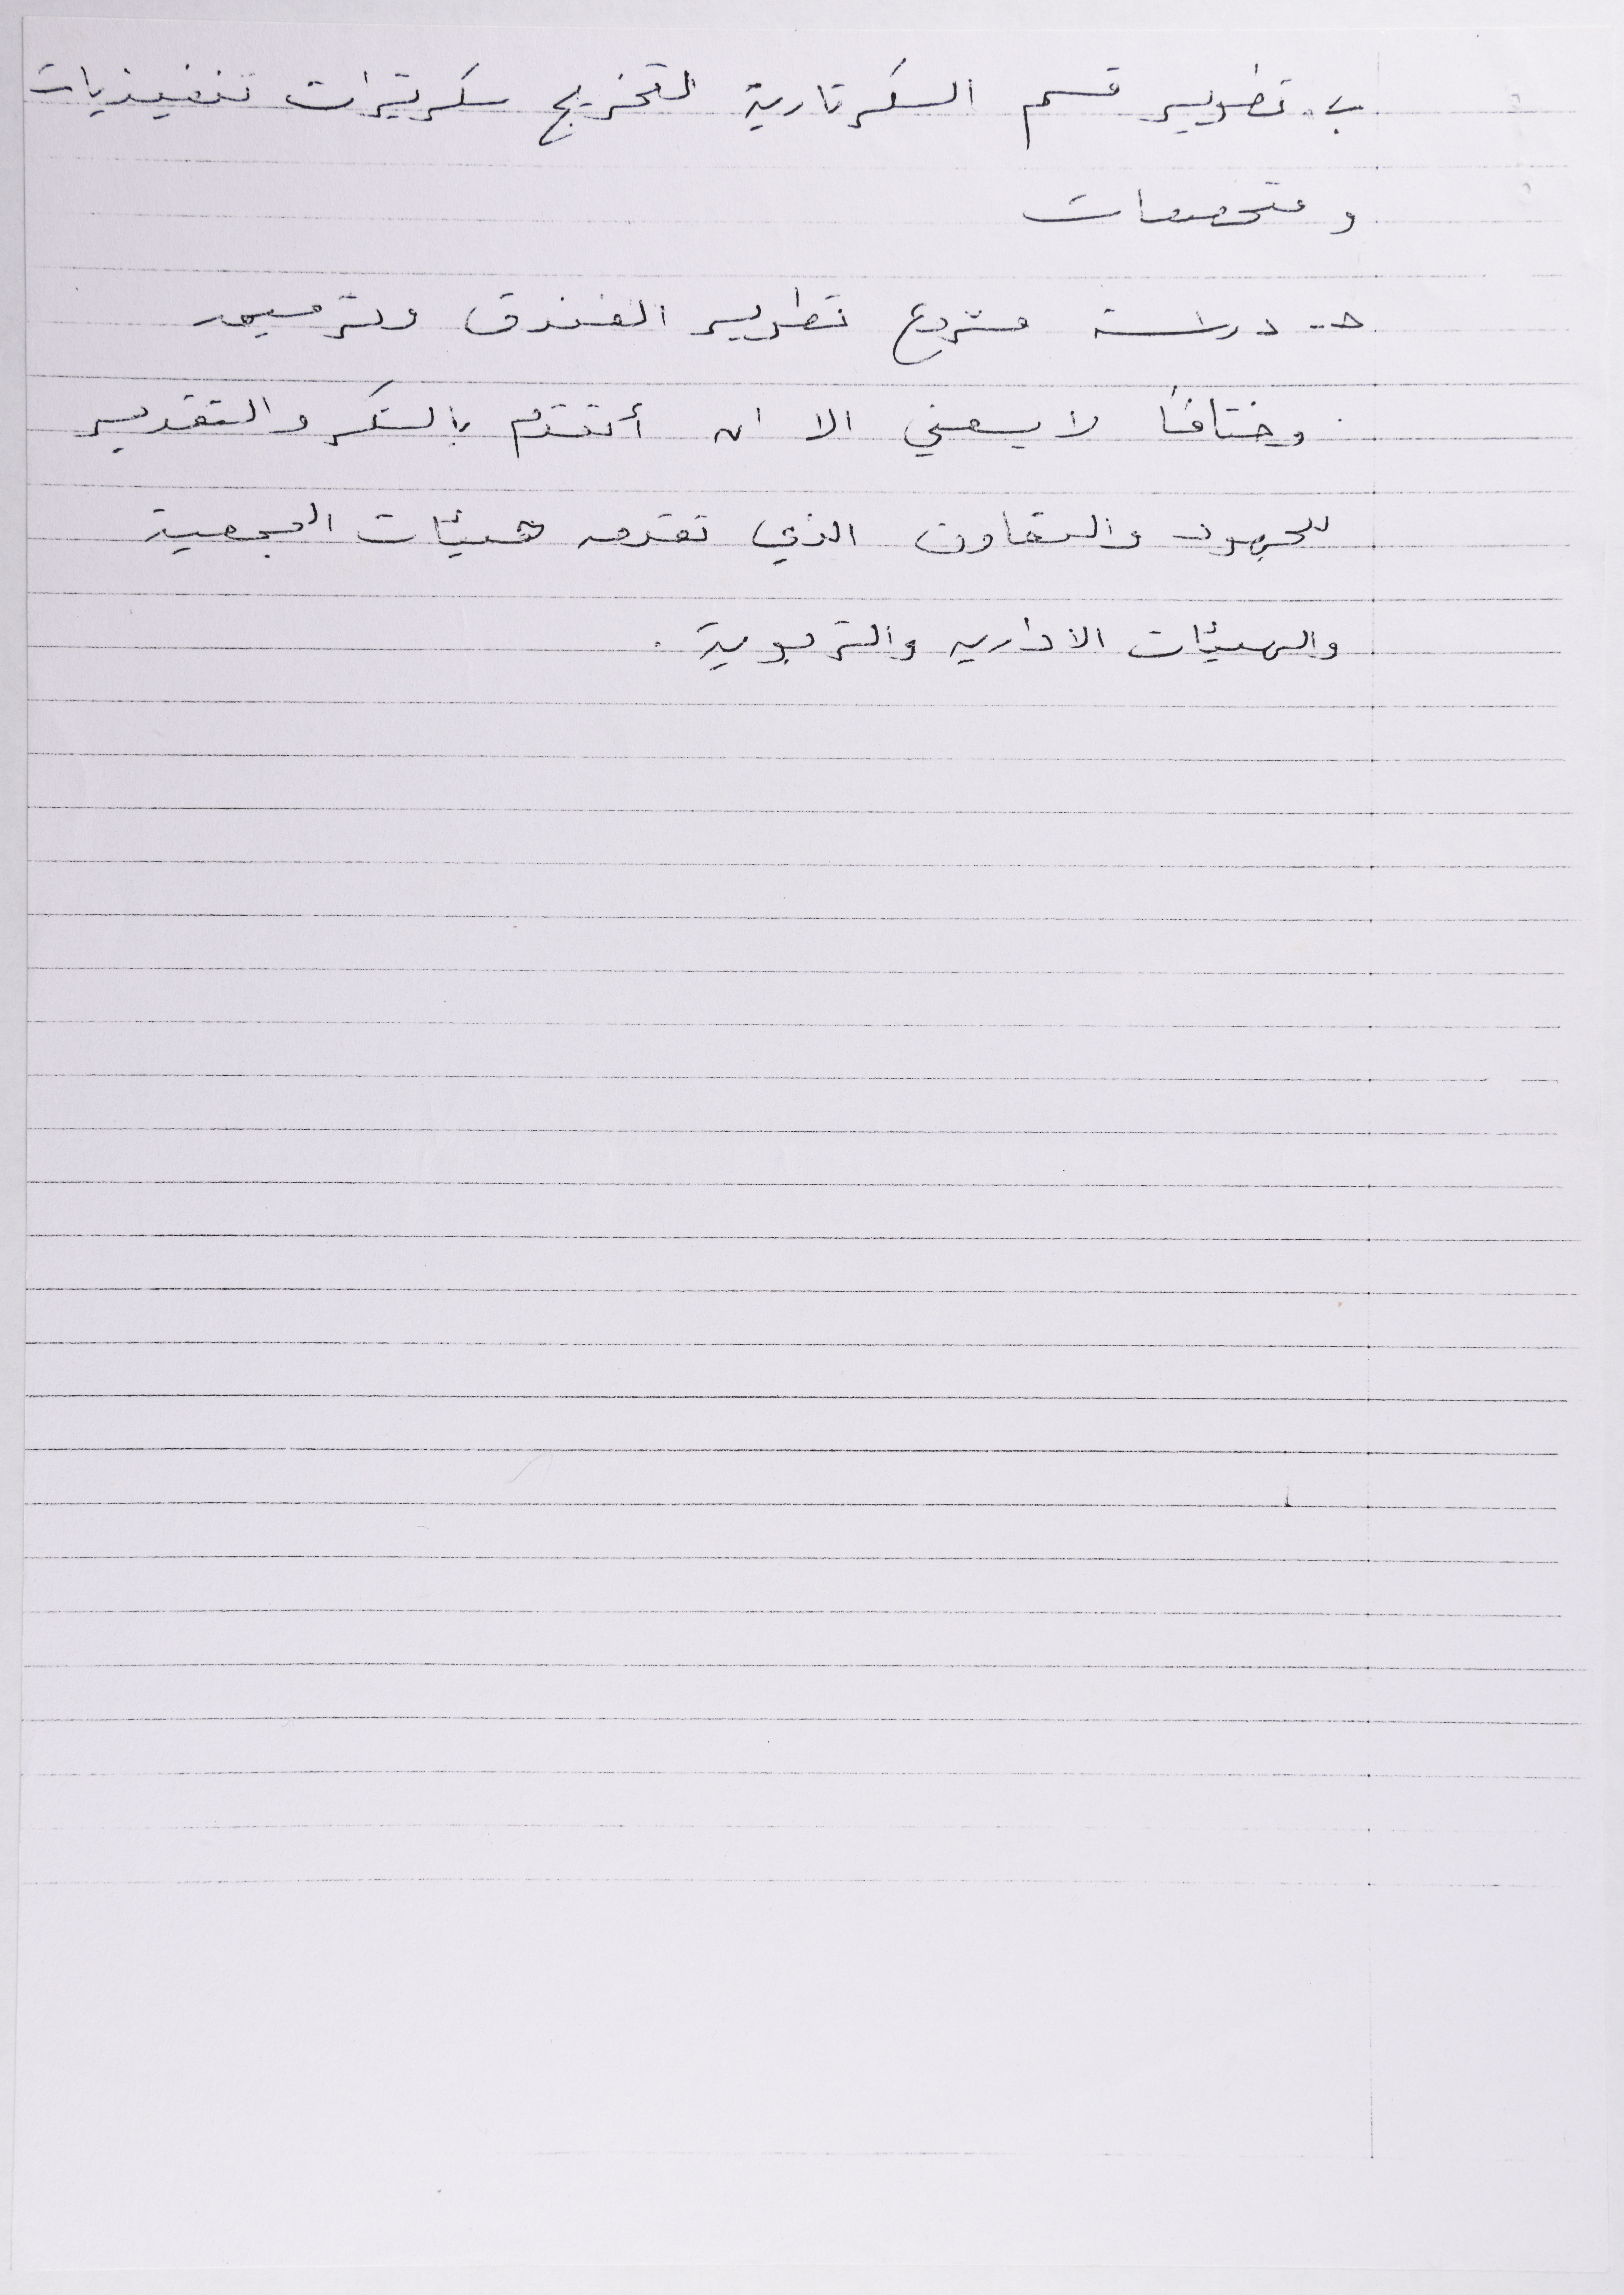 ب. تطوير قسم السكرتارية لتخريج سكرتيرات تنفيذيات
ومتخصصات
حـ - دراسة مشروع تطوير الفندق وترميمه
وختاماً لا يسعني الا ان أتقدم بالشكر والتقدير
للجهود والتعاون الذي تقدمه هيئات الجمعية
والهيئات الاداريه والتربوية.